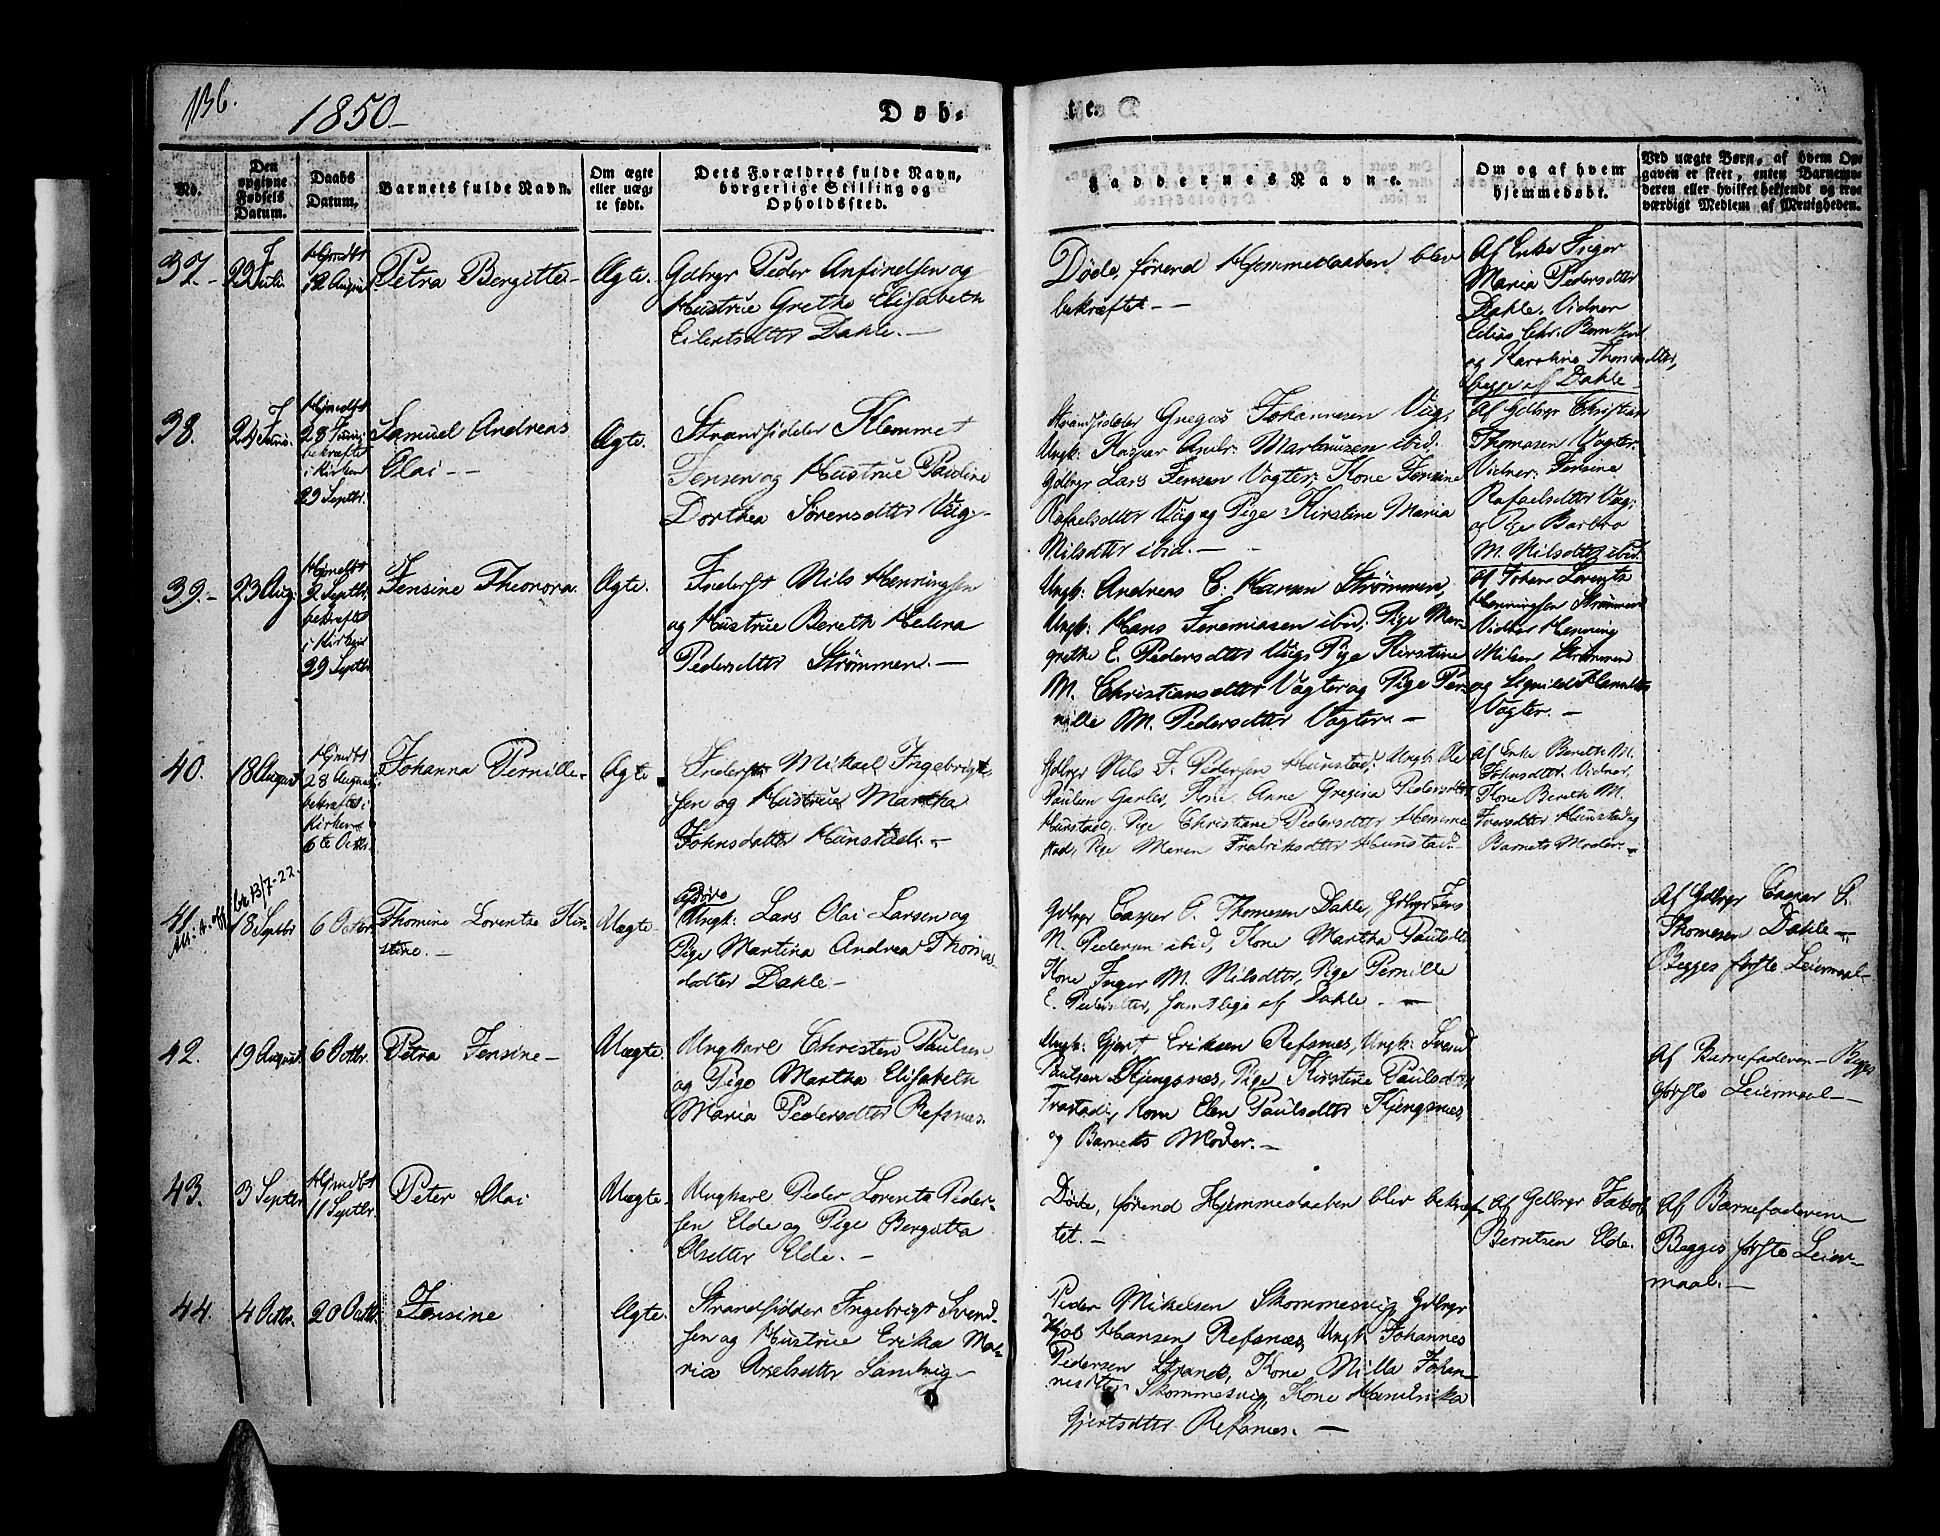 136.
1850
Døb-
te.
No.
Den
opgivne
Fødsels
Datum.
Daabs
Datum.
Barnets fulde Navn.
Om ægte
eller uæg-
te født.
Dets Forældres fulde Navn,
borgerlige Stilling og
Opholdssted.
Faddernes Navne.
Om og af hvem
hjemmedøbt.
Ved uægte Børn, af hvem Op-
gaven er skeet, enten Barnemo-
deren eller hvilket bekjendt og tro-
værdigt Medlem af Menigheden.
37.
22 Juli
Hjmdbt
12 August
Petra Bergitte
Ægte.
Gdbrgr Peder Anfindsen og
Hustrue Grethe Elisabeth
Eilertsdtter Dahle.
Døde, førend Hjemmedaaben blev
bekræftet
Af Enke Inger
Maria Pedersdtter
Dahle. Vidner
Elias Chr. Berntsen
og Karoline Thomasdtter,
begge af Dahle
38.
24 Juni.
Hjmdbt
28 Juni
bekræftet
i Kirken
29 Septbr.
Samuel Andreas
Olai
Ægte.
Strandsidder Klemmet
Jensen og Hustrue Pauline
Dorthea Sørensdtter Vug
Strandsidder Gregas Johannesen Vug,
Ungk: Kaspar Andr: Marthinsen ibid:
Gdbrgr Lars Jensen Vagter. Kone Jensine
Rafaelsdtter Vug og Pige Kirstine Maria
Nilsdtter ibid.
Af Gdbrgr Christian
Thomasen Vagter.
Vidner: Jensine
Rafaelsdtter Vug,
og Pige Barbro
M. Nilsdtter ibid.
39.
23 Aug:
Hjmdbt
2 Septbr.
bekræftet
i Kirken
29 Septbr.
Jensine Theonora
Ægte.
Inderst Nils Henningsen
og Hustrue Bereth Helena
Pedersdtter Strømmen.
Ungk: Andreas C. Hansen Strømmen,
Ungk: Hans Jeremiasen ibid; Pige Mar-
grethe E. Pedersdtter Vug, Pige Kirstine
M. Christiansdtter Vagter og Pige Per-
nille M. Pedersdtter Vagter.
Af Johan Lorents
Henningsen Strømmen
Vidner Henning
Nilsen Strømmen
og
Vagter.
40.
18 August
Hjmdbt
28 August
bekræftet i
Kirken
6te Octbr.
Johanna Pernille
Ægte
Inderst Mikael Ingebrigt-
sen og Hustrue Martha
Johnsdatter Hunstad.
Gdbrgr Nils J. Pedersen Hunstad, Ungk: Ole
Paulsen Kone Anne Gregina Pedersdtter
Hunstad, Pige Christiane Pedersdtter Hemme
stad, Pige Maren Fredriksdtter Hunstad.
Af Enke Bereth M.
Johnsdtter. Vidner,
Kone Bereth M.
Iversdtter Hunstad og
Barnets Moder.
41.
br 13/7-22.
18 Septbr
6 Octbr.
Thomine Lorentze Kir-
stine.
Uægte
Ungk: Lars Olai Larsen og
Pige Martina Andrea Thomas-
datter Dahle
Gdbrgr Casper C. Thomesen Dahle, Gdbrgr Jens
N. Pedersen ibid, Kone Martha Paulsdtter
Kone Inger M. Nilsdtter, Pige Pernille
E. Pedersdtter, samtlige af Dahle.
Af Gdbrgr Caspar C.
Thomesen Dahle
Begges første Leiermaal
42.
19 August
6 Octbr.
Petra Jensine
Uægte.
Ungkarl Christen Paulsen
og Pige Martha Elisabeth
Maria Pedersdtter Refsnes.
Ungk: Gjert Eriksen Refsnes, Ungk: Svend
Paulsen Kjengsnes, Pige Kirstine Paulsdtter
Kone Elen Paulsdtter Kjengsnes
og Barnets Moder.
Af Barnefaderen Begges
første Leiermaal
43.
3 Septbr
Hjmdbt
11 Septbr.
Peter Olai
Uægte
Ungkarl Peder Lorents Peder-
sen Elde og Pige Bergitta
Olsdtter Elde.
Døde, førend Hjemmedaaben blev bekræf-
tet.
Af Gdbrgr Jakob
Berntsen Elde.
Af Barnefaderen
Begges første Leier-
maal.
44.
4 Octbr.
20 Octbr
Jensine
Ægte.
Strandsidder Ingebrigt Svend-
sen og Hustrue Erika Ma-
ria Axelsdtter Sandvig
Peder Mikelsen Skommesvig, Gdbrgr
Hansen Refsnes, Ungk: Johannes
Pedersen Strand, Kone Milla Johan-
nesdtter Skommesvig, Kone Hendrika
Gjertsdtter Refsnes.